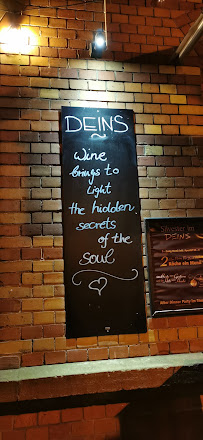 DEINS
Wine
brings to
Light
the hidden
secrets
of the
soul
Silvester im
DEINS
2